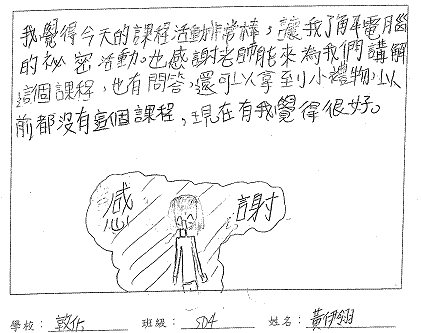 我覺得今天的課程活動非常棒，讓我了解電腦
的祕密活動。也感謝老師能來為我們講解
這個課程，也有問答，還可以拿到小禮物，以
前都没有這個課程，現在有我覺得很好。
感
謝
學校：敦化 班級：504 姓名：黃伊翎